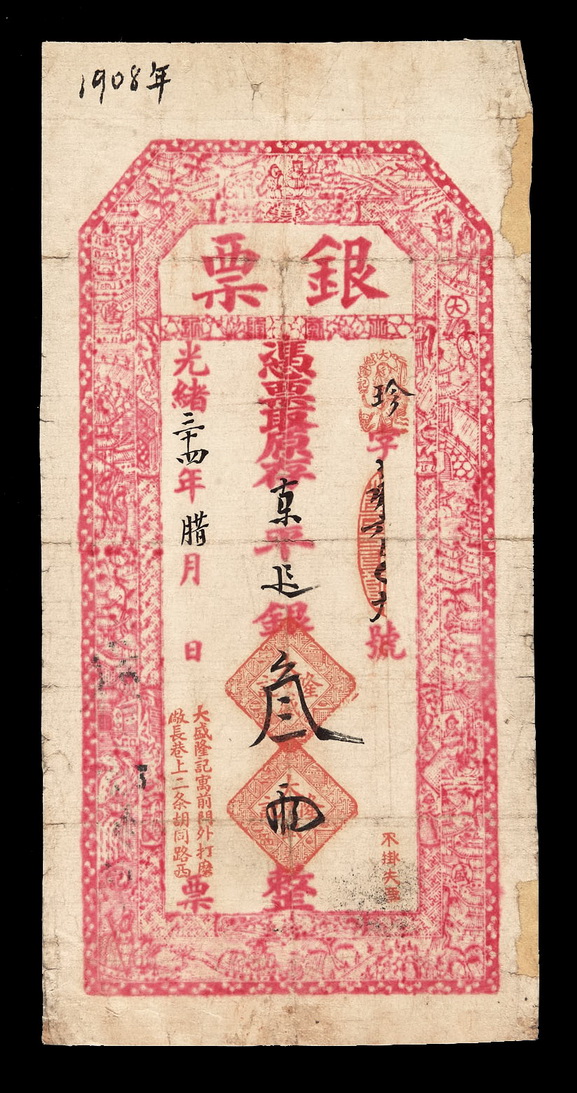 1908年
銀票
珍字
號
不掛失票
憑票取原存京平足銀叁兩整
光緒三十四年腊月 日
大盛隆記寓前門外打磨
廠長巷上二条胡同路西
票